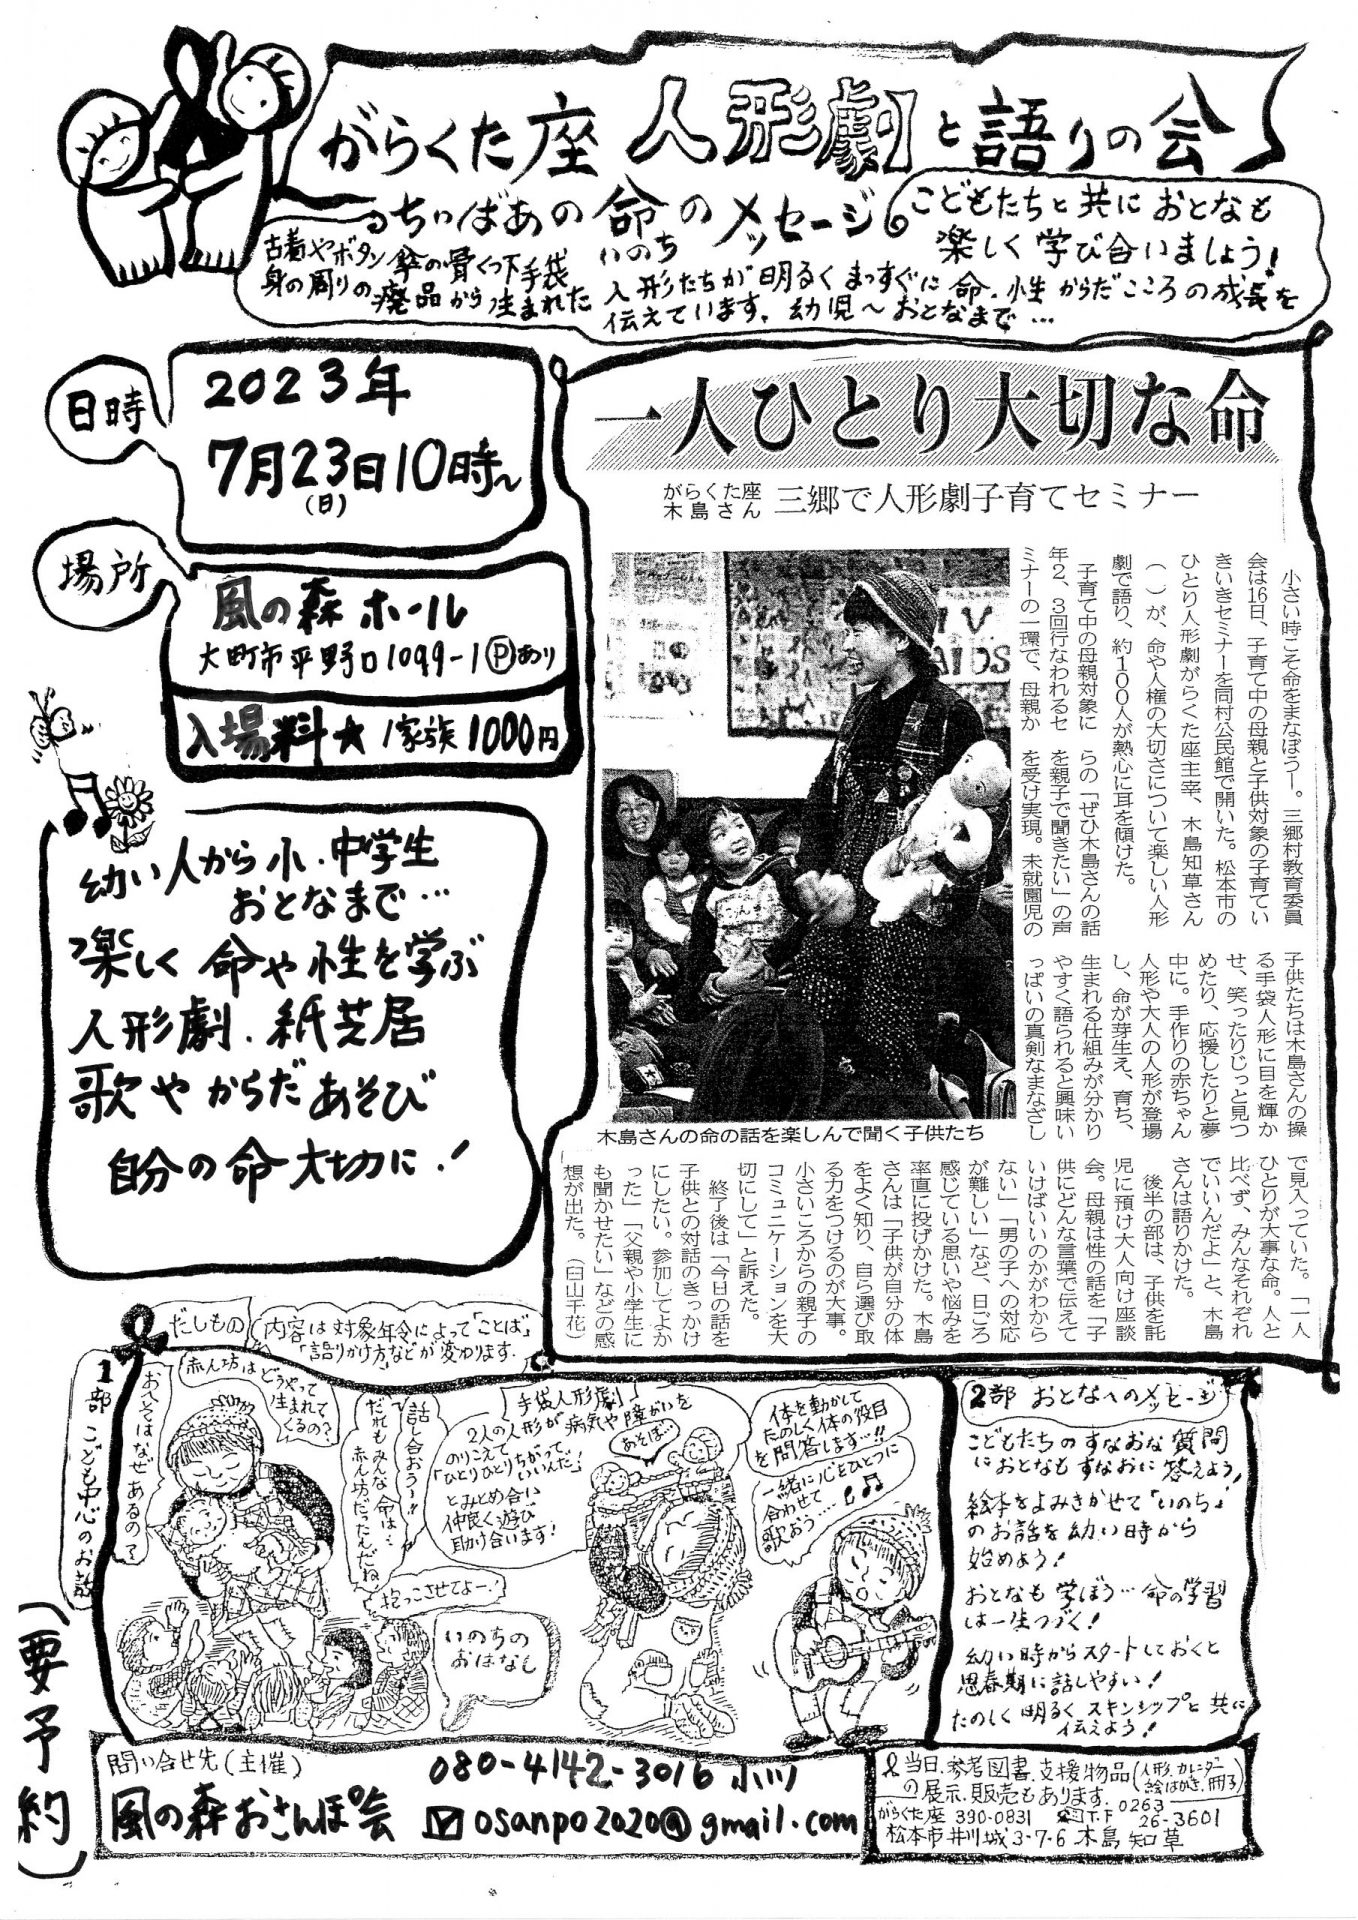 がらくた座 人形劇と語りの会
ちいばあの命のメッセージ
いのち
こどもたちと共におとなも
楽しく学び合いましょう!
古着やボタン傘の骨くつ下手袋
身の周りの廃品から生まれた
人形たちが明るくまっすぐに命・性からだこころの成長を
伝えています。幼児〜おとなまで…
日時
2023年
7月23日10時〜
(日)
場所
風の森ホール
大町市平野口1099-1 Pあり
入場料★1家族1000円
幼い人から小・中学生
おとなまで…
楽しく命や性を学ぶ
人形劇・紙芝居
歌やからだあそび
自分の命大切に!
一人ひとり大切な命
がらくた座
木島さん
三郷で人形劇子育てセミナー
小さい時こそ命をまなぼうー。三郷村教育委員
会は16日、子育て中の母親と子供対象の子育てい
きいきセミナーを同村公民館で開いた。松本市の
ひとり人形劇がらくた座主幸、木島知草さん
( )が、命や人権の大切さについて楽しい人形
劇で語り、約100人が熱心に耳を傾けた。
子育て中の母親対象に
年2、3回行なわれるセ
ミナーの一環で、母親か
らの「ぜひ木島さんの話
を親子で聞きたい」の声
を受け実現。未就園児の
子供たちは木島さんの操
る手袋人形に目を輝か
せ、笑ったりじっと見つ
めたり、応援したりと夢
中に。手作りの赤ちゃん
人形や大人の人形が登場
し、命が芽生え、育ち、
生まれる仕組みが分かり
やすく語られると興味い
っぱいの真剣なまなざし
で見入っていた。「一人
ひとりが大事な命。人と
比べず、みんなそれぞれ
でいいんだよ」と、木島
さんは語りかけた。
後半の部は、子供を託
児に預け大人向け座談
会。母親は性の話を「子
供にどんな言葉で伝えて
いけばいいのかがわから
ない」「男の子への対応
が難しい」など、日ごろ
感じている思いや悩みを
率直に投げかけた。木島
さんは「子供が自分の体
をよく知り、自ら選び取
る力をつけるのが大事。
小さいころからの親子の
コミュニケーションを大
切にして」と訴えた。
終了後は「今日の話を
子供との対話のきっかけ
にしたい。参加してよか
った」「父親や小学生に
も聞かせたい」などの感
想が出た。(臼山千花)
木島さんの命の話を楽しんで聞く子供たち
だしもの
内容は対象年令によって「ことば」
「語りかけ方」などが変わります.
1部 こども中心のお話
おへそはなぜあるの?
赤ん坊はどうやって
生まれて
くるの?
話し合おう!!
だれもみんな命は…
赤ん坊だったんだね
抱っこさせてよー!
いのちの
おはなし
手袋人形劇
2人の人形が病気や障がいを
のりこえて
「ひとりひとりちがって
いいんだ!」
とみとめ合い
仲良く遊び
助け合います!
あそぼ…
体を動かして
たのしく体の役目
を問答します…!!
一緒に心をひとつに
合わせて
歌おう…
2部 おとなへのメッセージ
こどもたちのすなおな質問
におとなもすなおに答えよう
絵本をよみきかせて「いのち」
のお話を幼い時から
始めよう!
おとなも学ぼう…命の学習
は一生つづく!
幼い時からスタートしておくと
思春期に話しやすい!
たのしく明るくスキンシップと共に
伝えよう!
(要予約)
問い合せ先(主催)
風の森おさんぽ会
080-4142-3016 小川
osanpo2020@gmail.com
当日、参考図書.支援物品(人形.カレンダー
絵はがき.冊子)
の展示、販売もあります.
がらくた座 390-0831 T.F 0263
26-3601
松本市井川城3-7-6 木島知草